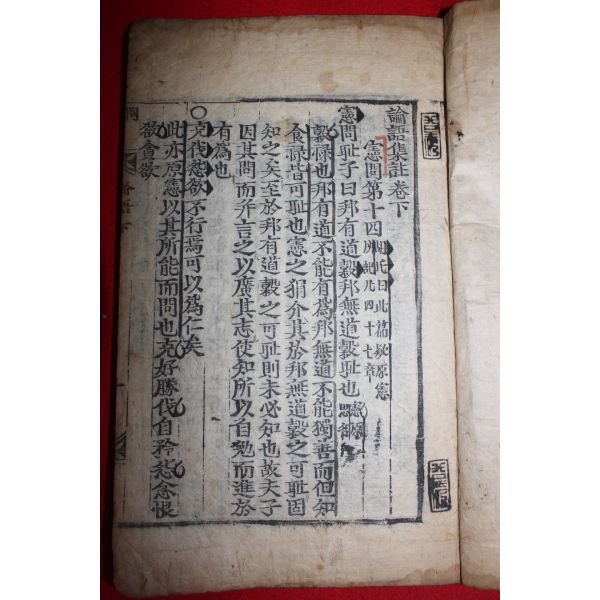 論語集註卷下
憲問第十四
胡氏曰此篇疑原憲
所記凡四十七章
憲問恥子曰邦有道穀邦無道穀恥也
憲原
思名
穀祿也邦有道不能有爲邦無道不能獨善而但知
食祿皆可恥也憲之狷介其於邦無道穀之可恥固
知之矣至於邦有道穀之可恥則未必知也故夫子
因其問而幷言之以廣其志使知所以自勉而進於
有爲也
○克伐怨欲不行焉可以爲仁矣
此亦原憲以其所能而問也克好勝伐自矜怨忿恨
欲貪欲